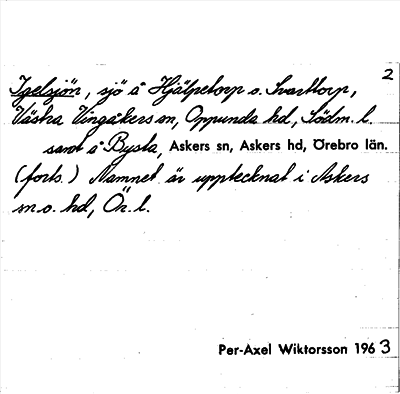 2
Igelsjön, sjö å Hjälpetorp o. Svarttorp,
Västra Vingåkers sn, Oppunda hd, Södm. l.
samt å Bysta, Askers sn, Askers hd, Örebro län.
(forts.) Namnet är upptecknat i Askers
sn o. hd, Ör. l.
Per-Axel Wiktorsson 1963